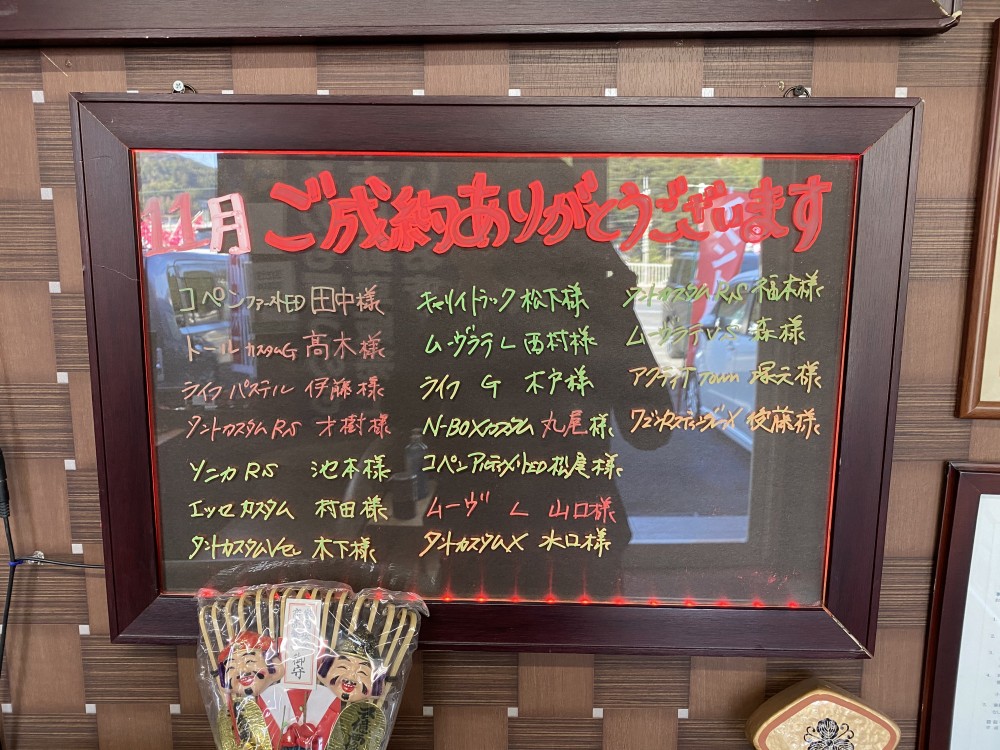 11月 ご成約ありがとうございます
コペン 田中様
トールカスタムG 高木様
ライフ パステル 伊藤様
タントカスタムRS 才樹様
ソニカ RS 池本様
エッセ カスタム 村田様
タントカスタムVセレ 木下様
キャリイトラック 松下様
ムーヴラテ L 西村様
ライフ G 木戸様
N-BOXカスタム 丸尾様
コペンアルティメット 松尾様
ムーヴ L 山口様
タントカスタムX 水口様
タントカスタムRS 福本様
ムーヴラテVS 森様
アクティ Town 様
後藤様